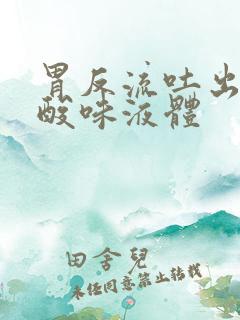 胃反流吐出
酸味液體
田舍兒
未經同意禁止轉載